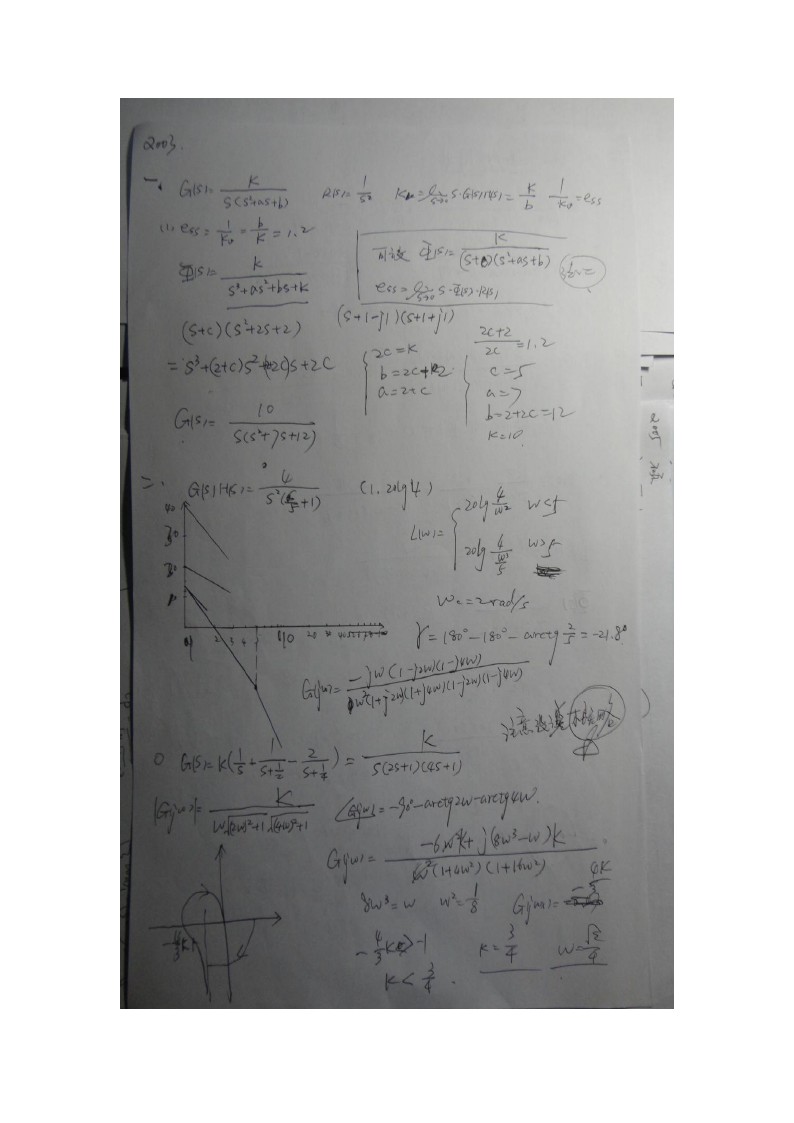 2003.
一、 G(s)= K / s(s²+as+b)   R(s)= 1/s²   Kv= lim s→0 s·G(s)H(s)= K/b   1/Kv =ess
(1. ess = 1/Kv = b/K = 1.2
可设 Φ(s)= K / (s+c)(s²+as+b)
Φ(s)= K / s³+as²+bs+K
ess= lim s→0 s·Φ(s)·R(s)
(s+c)(s²+2s+2)   (s+1-j1)(s+1+j1)
= s³+(2+c)s²+(2+2c)s+2c
{ 2c=K
b=2c+2
a=2+c
{ 2c+2 / 2c =1.2
c=5
a=7
b=2+2c=12
K=10.
G(s)= 10 / s(s²+7s+12)
二、 G(s)H(s)= 4 / s²(s/5+1)   (1. 20lg4)
L(w)= { 20lg 4/w²   w<5
20lg 4/(w³/5)   w>5
40
30
20
10
2 3 4   10   20 30 40
wc=2rad/s
γ=180°-180°-arctg 2/5 = -21.8°
G(jw)= -jw(1-j2w)(1-j4w) / w²(1+j2w)(1+j4w)(1-j2w)(1-j4w)
注意
G(s)= K(1/s + 1/(s+1/2) - 2/(s+1/4)) = K / s(2s+1)(4s+1)
|G(jw)|= K / w√(2w)²+1 √(4w)²+1   ∠G(jw)=-90°-arctg2w-arctg4w.
G(jw)= -6w²K+j(8w³-w)K / w²(1+4w²)(1+16w²)
8w³=w   w²=1/8   G(jw)= -4K/3
-4/3 K
-4/3 K>-1   K=3/4   w=√2/4
K< 3/4 .
2005